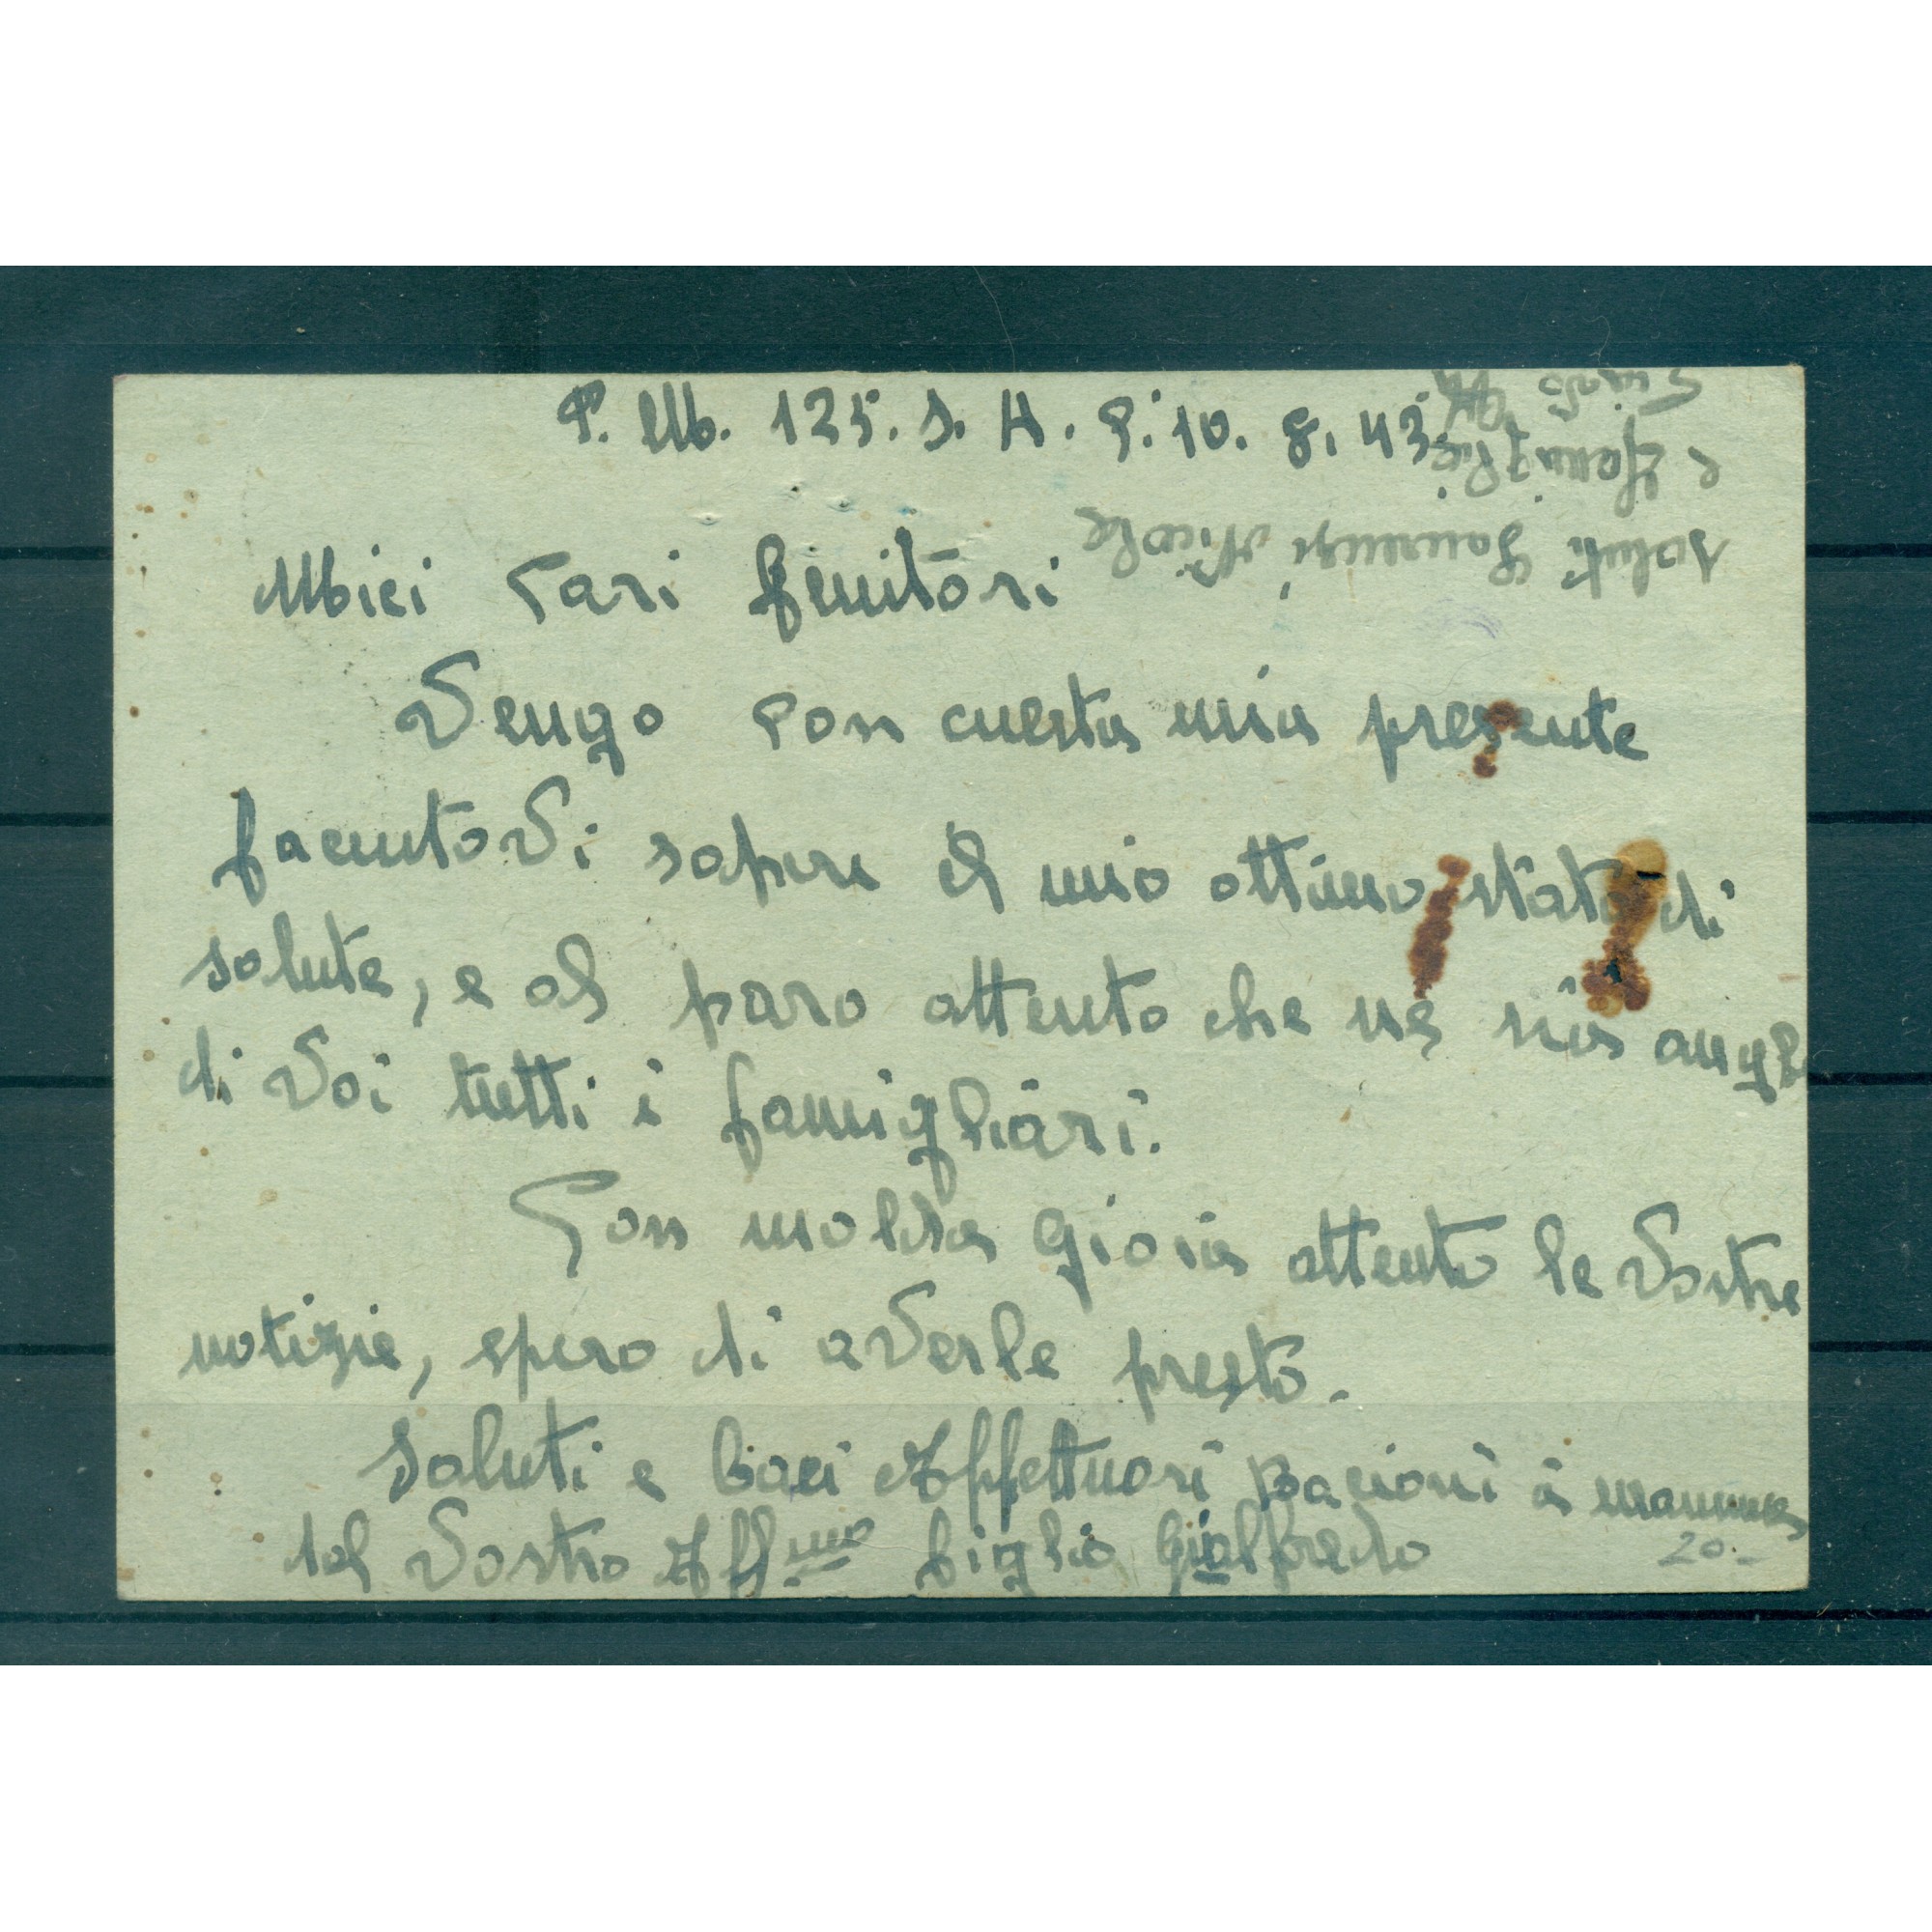 P. M. 125. S. A. lì 10. 8. 43.
Miei Cari Genitori
Vengo con cuesta mia presente
facentovi sapere il mio ottimo stato di
salute, e al paro attento che ne sia anche
di Voi tutti i famigliari.
Con molta gioia attento le Vostre
notizie, spero di averle presto.
Saluti e baci Affettuosi Bacioni a mamma
dal Vostro Aff.mo figlio Gialfredo
20.-
saluti Nicola
e famiglia